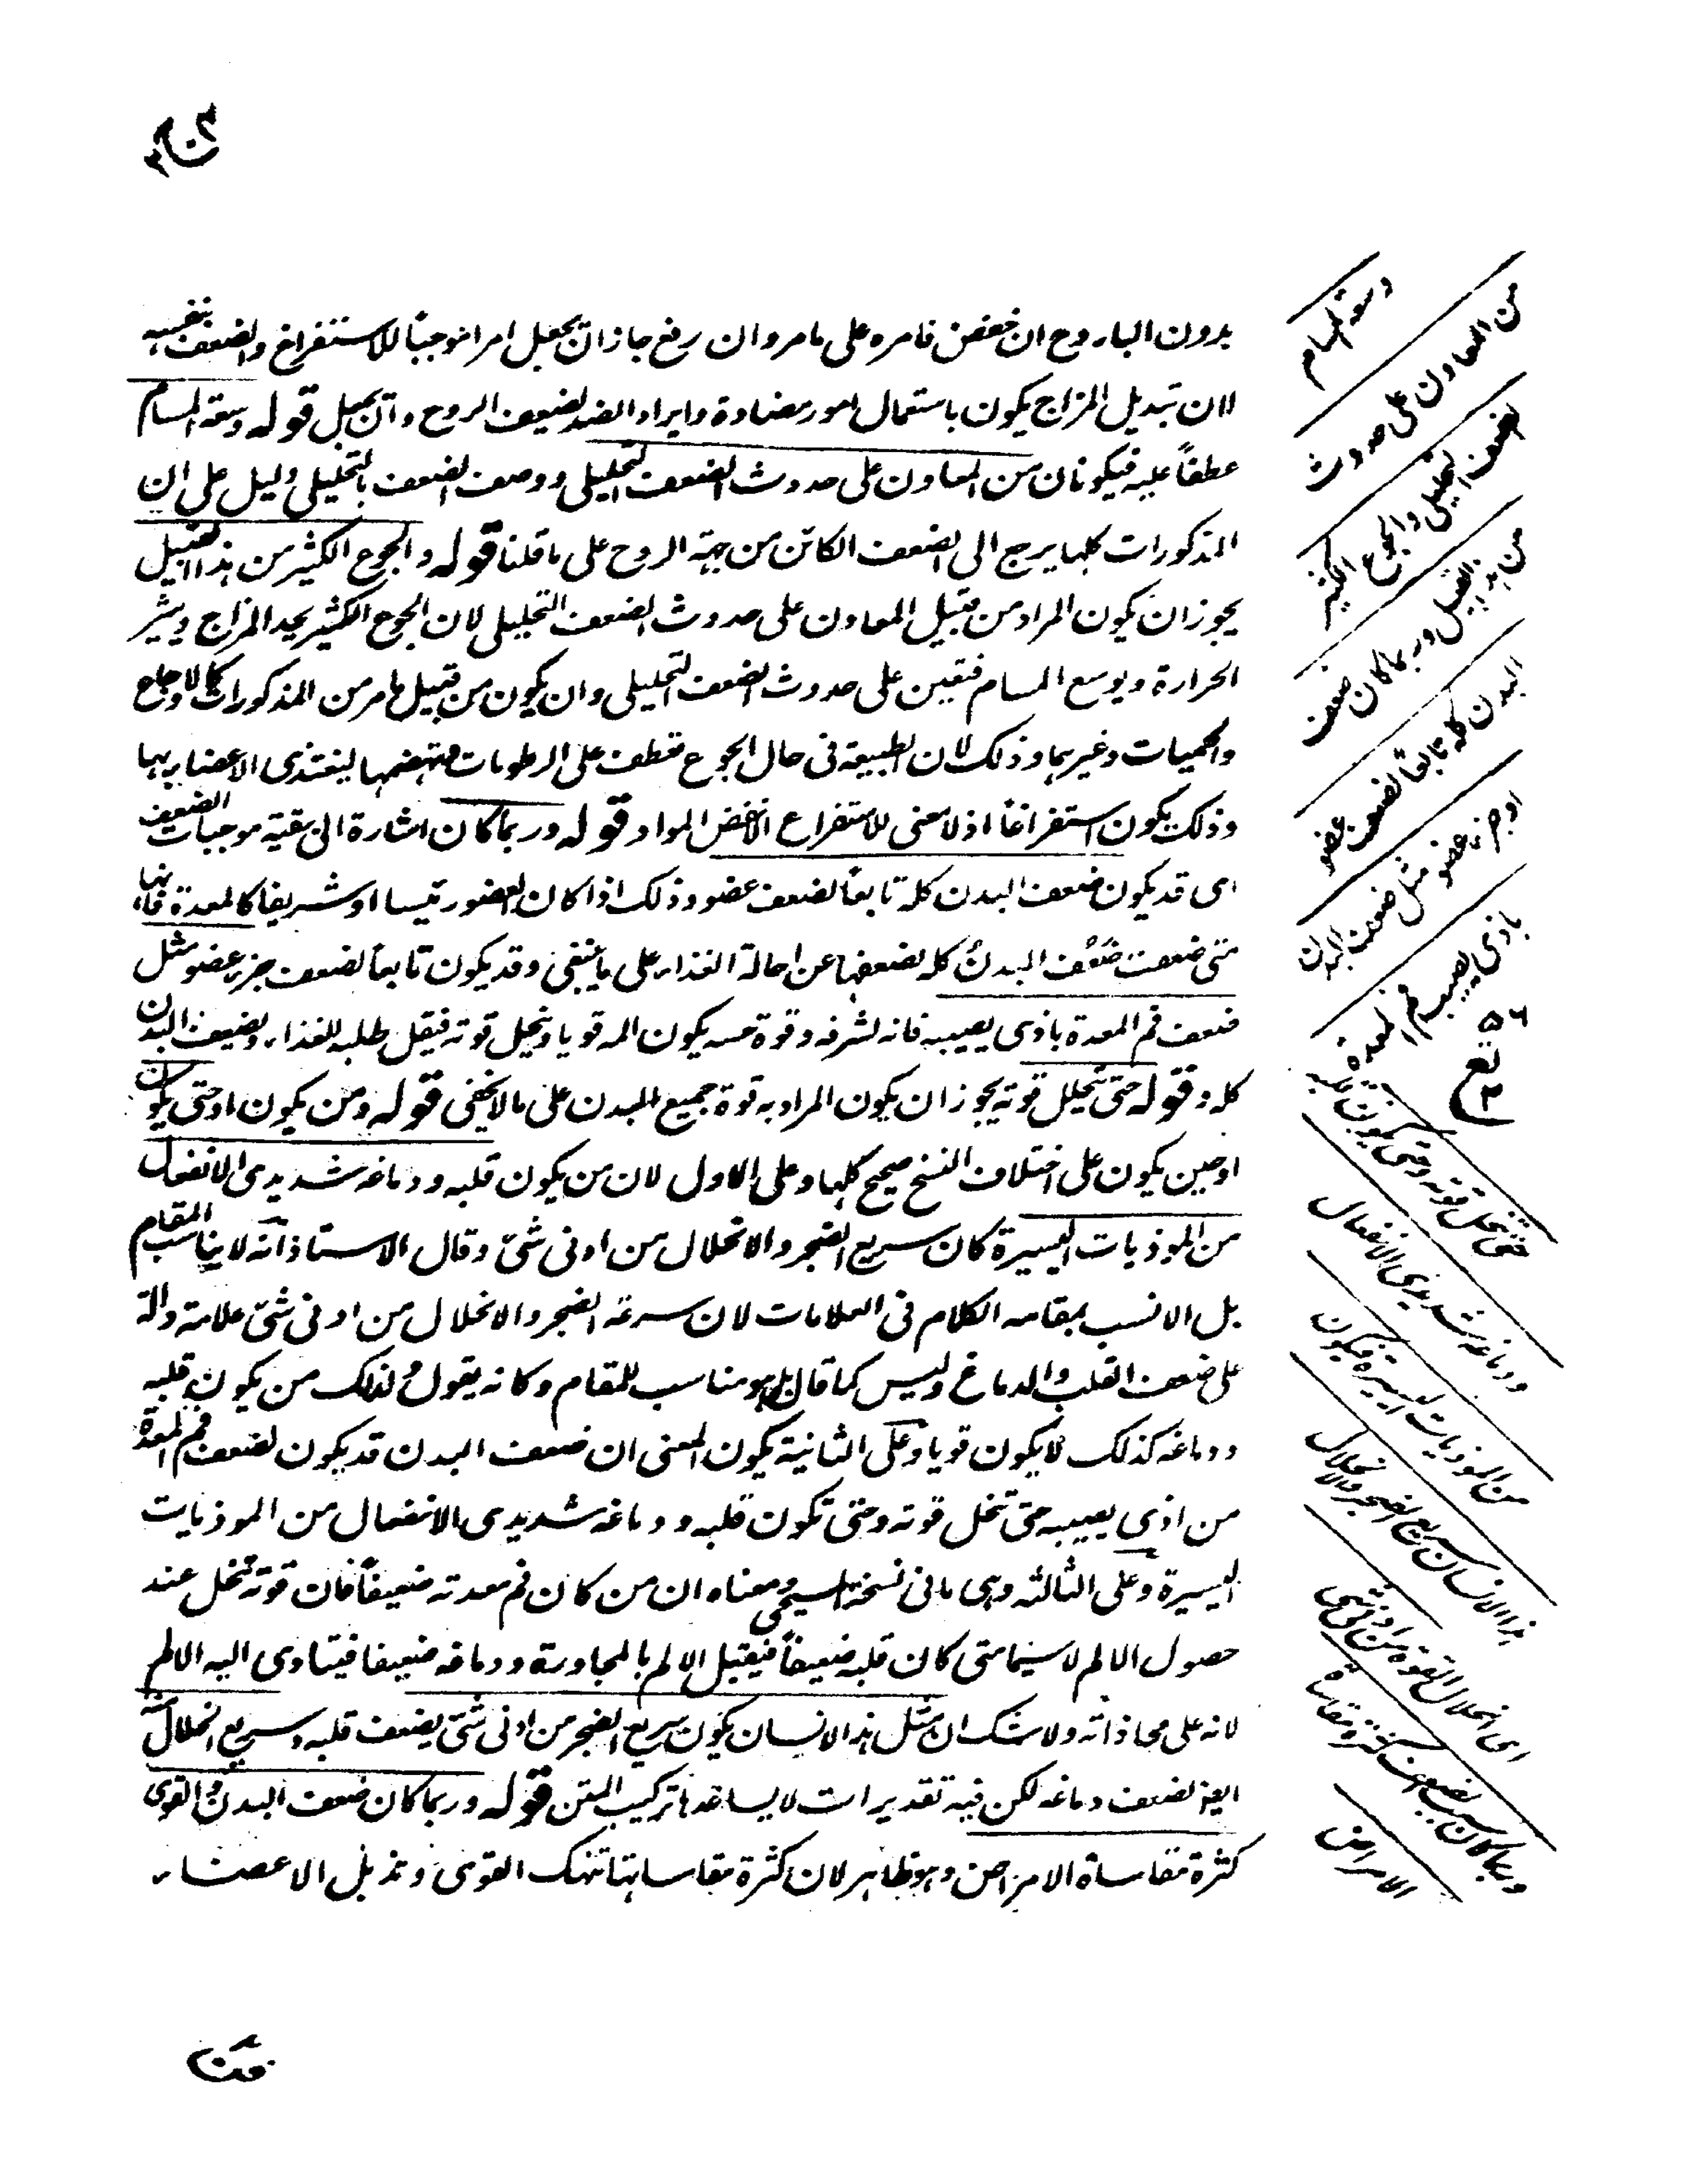 بدون الباروح ان خفض فامره على ما مر وان رفع جاز ان يجعل امرا موجبًا للاستفراغ والضعف بنفسه
لان تبديل المزاج يكون باستعمال امور مضادة وايراد الضد لضيعف الروح وان يجعل قوله وسعة المسام
عطفاً عليه فيكونان من المعاون على حدوث الضعف التحليلى ووصف الضعف بالتحليلى دليل على ان
المذكورات كلها يرجع الى الضعف الكائن من جهة الروح على ما قلنا قوله والجوع الكثير من هذا القبيل
يجوز ان يكون المراد من قبيل المعاون على حدوث الضعف التحليلى لان الجوع الكثير يحد المزاج ويثير
الحرارة ويوسع المسام فتعين على حدوث الضعف التحليلى وان يكون من قبيل ما مر من المذكورات كالاوجاع
والحميات وغيرهما وذلك لان الطبيعة فى حال الجوع تعطف على الرطوبات فتهضمها ليغتذى الاعضاء بها
وذلك يكون استفراغاً اذ لا معنى للاستفراغ الا نفض المواد قوله وربما كان اشارة الى بقية موجبات الضعف
اى قد يكون ضعف البدن كله تابعاً لضعف عضو وذلك اذا كان العضو رئيسا او شريفا كالمعدة فانها
متى ضعفت ضَعُف البدنُ كله لضعفها عن احالة الغذاء على ما ينبغى وقد يكون تابعاً لضعف جزء عضو مثل
ضعف فم المعدة باذى يصيبه فانه لشرفه وقوة حسه يكون المه قويا وتحلل قوته فيقل طلبه للغذاء ويضيعف البدن
كله وقوله حتى تتحلل قوته يجوز ان يكون المراد به قوة جميع البدن على ما لا يخفى قوله ومن يكون او حتى يكون
او حين يكون على اختلاف النسخ صحيح كلها وعلى الاول لان من يكون قلبه ودماغه شديدى الانفعال
من الموذيات اليسيرة كان سريع الضجر والانحلال من ادنى شئ وقال الاستاذ انه لا يناسب المقام
بل الانسب بمقامه الكلام فى العلامات لان سرعة الضجر والانحلال من ادنى شئ علامة دالة
على ضعف القلب والدماغ وليس كما قال بل هو مناسب للمقام وكانه يقول ولذلك من يكون قلبه
ودماغه كذلك لا يكون قويا وعلى الثانية يكون المعنى ان ضعف البدن قد يكون لضعف فم المعدة
من اذى يصيبه حتى تنحل قوته وحتى تكون قلبه ودماغه شديدى الانفعال من الموذيات
اليسيرة وعلى الثالثه وهى ما فى نسخة المسيحى ومعناه ان من كان فم معدته ضعيفاً فان قوته تنحل عند
حصول الالم لا سيما متى كان قلبه ضعيفاً فيقبل الالم بالمجاورة ودماغه ضعيفا فيتاوى اليه الالم
لانه على محاذاته ولا شك ان مثل هذا الانسان يكون سريع الضجر من ادنى شئ يضعف قلبه وسريع انحلال
ايضا لضعف دماغه لكن فيه تقديرات لا يساعدها تركيب المتن قوله وربما كان ضعف البدن والقوى
كثرة مقاساة الامراض وهو ظاهر لان كثرة مقاساتها تنهك القوى وتذبل الاعضاء
وسعة المسام
من المعاون على حدوث
الضعف التحليلى والجوع الكثير
من هذا القبيل وربما كان ضعف
البدن كله تابعاً لضعف عضو
او جزء عضو مثل ضعف البدن
باذى يصيب فم المعدة
حتى تنحل قوته وحتى يكون قلبه
ودماغه شديدى الانفعال
من الموذيات اليسيرة فيكون
هذا الانسان سريع الضجر والانحلال
اى انحلال القوة من ادنى شئ
وربما كان سبب الضعف كثرة مقاساة
الامراض